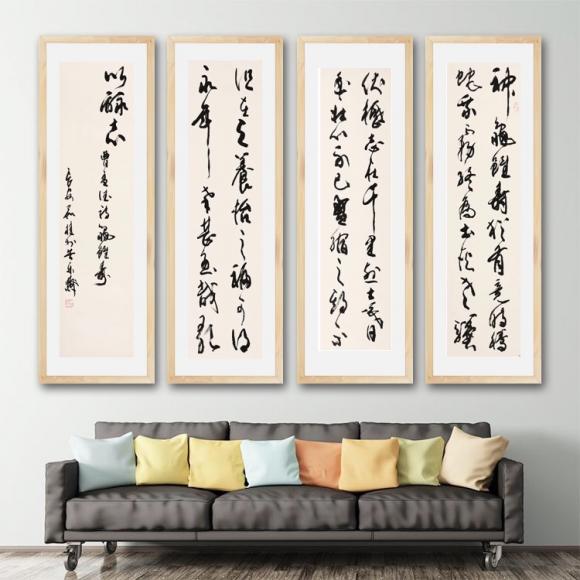 神龜雖壽猶有竟時騰
蛇乘霧終為土灰老驥
伏櫪志在千里烈士暮
年壯心不已盈縮之期不
但在天養怡之福可得
永年幸甚至哉歌
以詠志 曹孟德詩龜雖壽